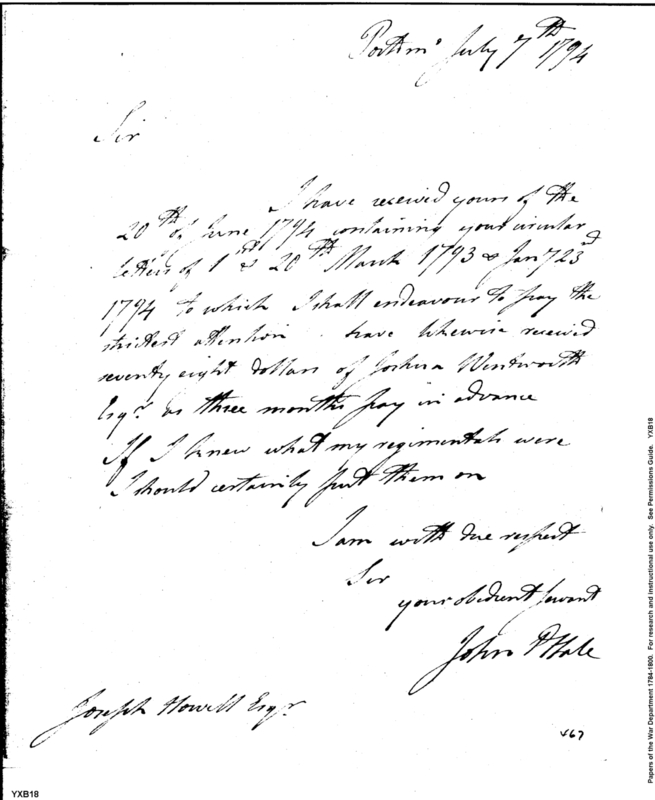 Portsmº July 7th 1794
Sir
I have received yours of the
20th of June 1794 containing your circular
letters of 1st & 20th March 1793 & Jany 23d
1794 to which I shall endeavour to pay the
strictest attention. have likewise received
seventy eight dollars of Joshua Wentworth
Esqr as three months pay in advance
If I knew what my regimentals were
I should certainly put them on
I am with due respect
Sir
your obedient servant
John P Hale
Joseph Howell Esqr
467
YXB18
Papers of the War Department 1784-1800. For research and instructional use only. See Permissions Guide. YXB18